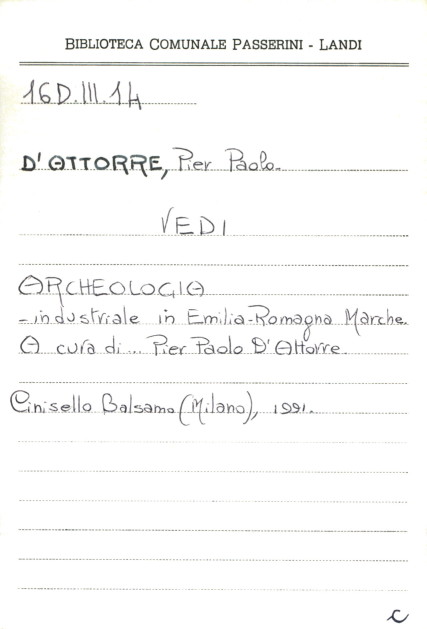 BIBLIOTECA COMUNALE PASSERINI - LANDI
16D.III.14
D'ATTORRE, Pier Paolo.
VEDI
ARCHEOLOGIA
-industriale in Emilia-Romagna Marche.
A cura di... Pier Paolo D'Attorre.
Cinisello Balsamo (Milano), 1991.
C